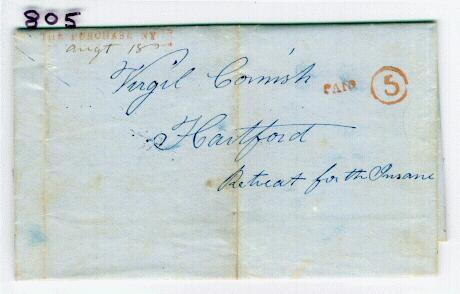 805
THE PURCHASE NY
Augt 18
Virgil Cornish
PAID 5
Hartford
Retreat for th Insane